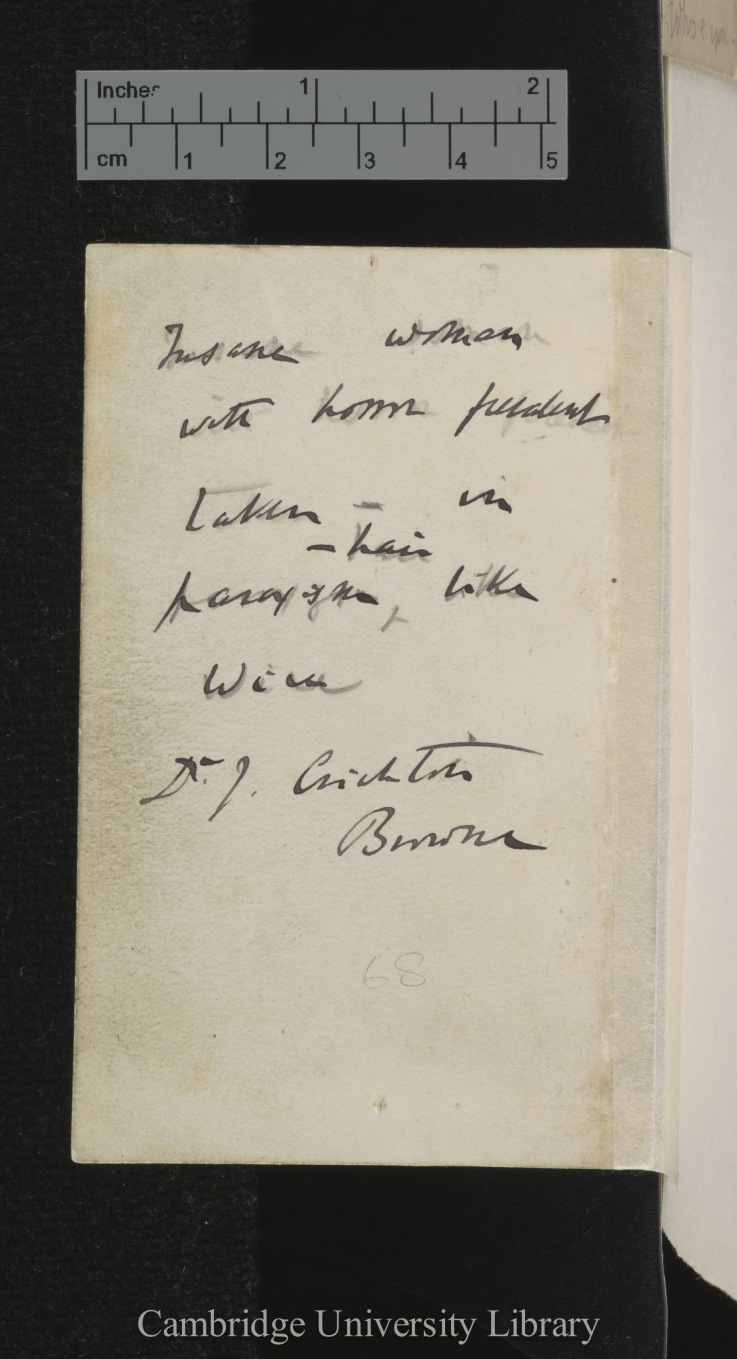 Who
Inches 1 2
cm 1 2 3 4 5
Insane woman
with horror
taken – in
– hair
paroxysm, like
Wire
Dr. J. Crichton
Browne
68
Cambridge University Library